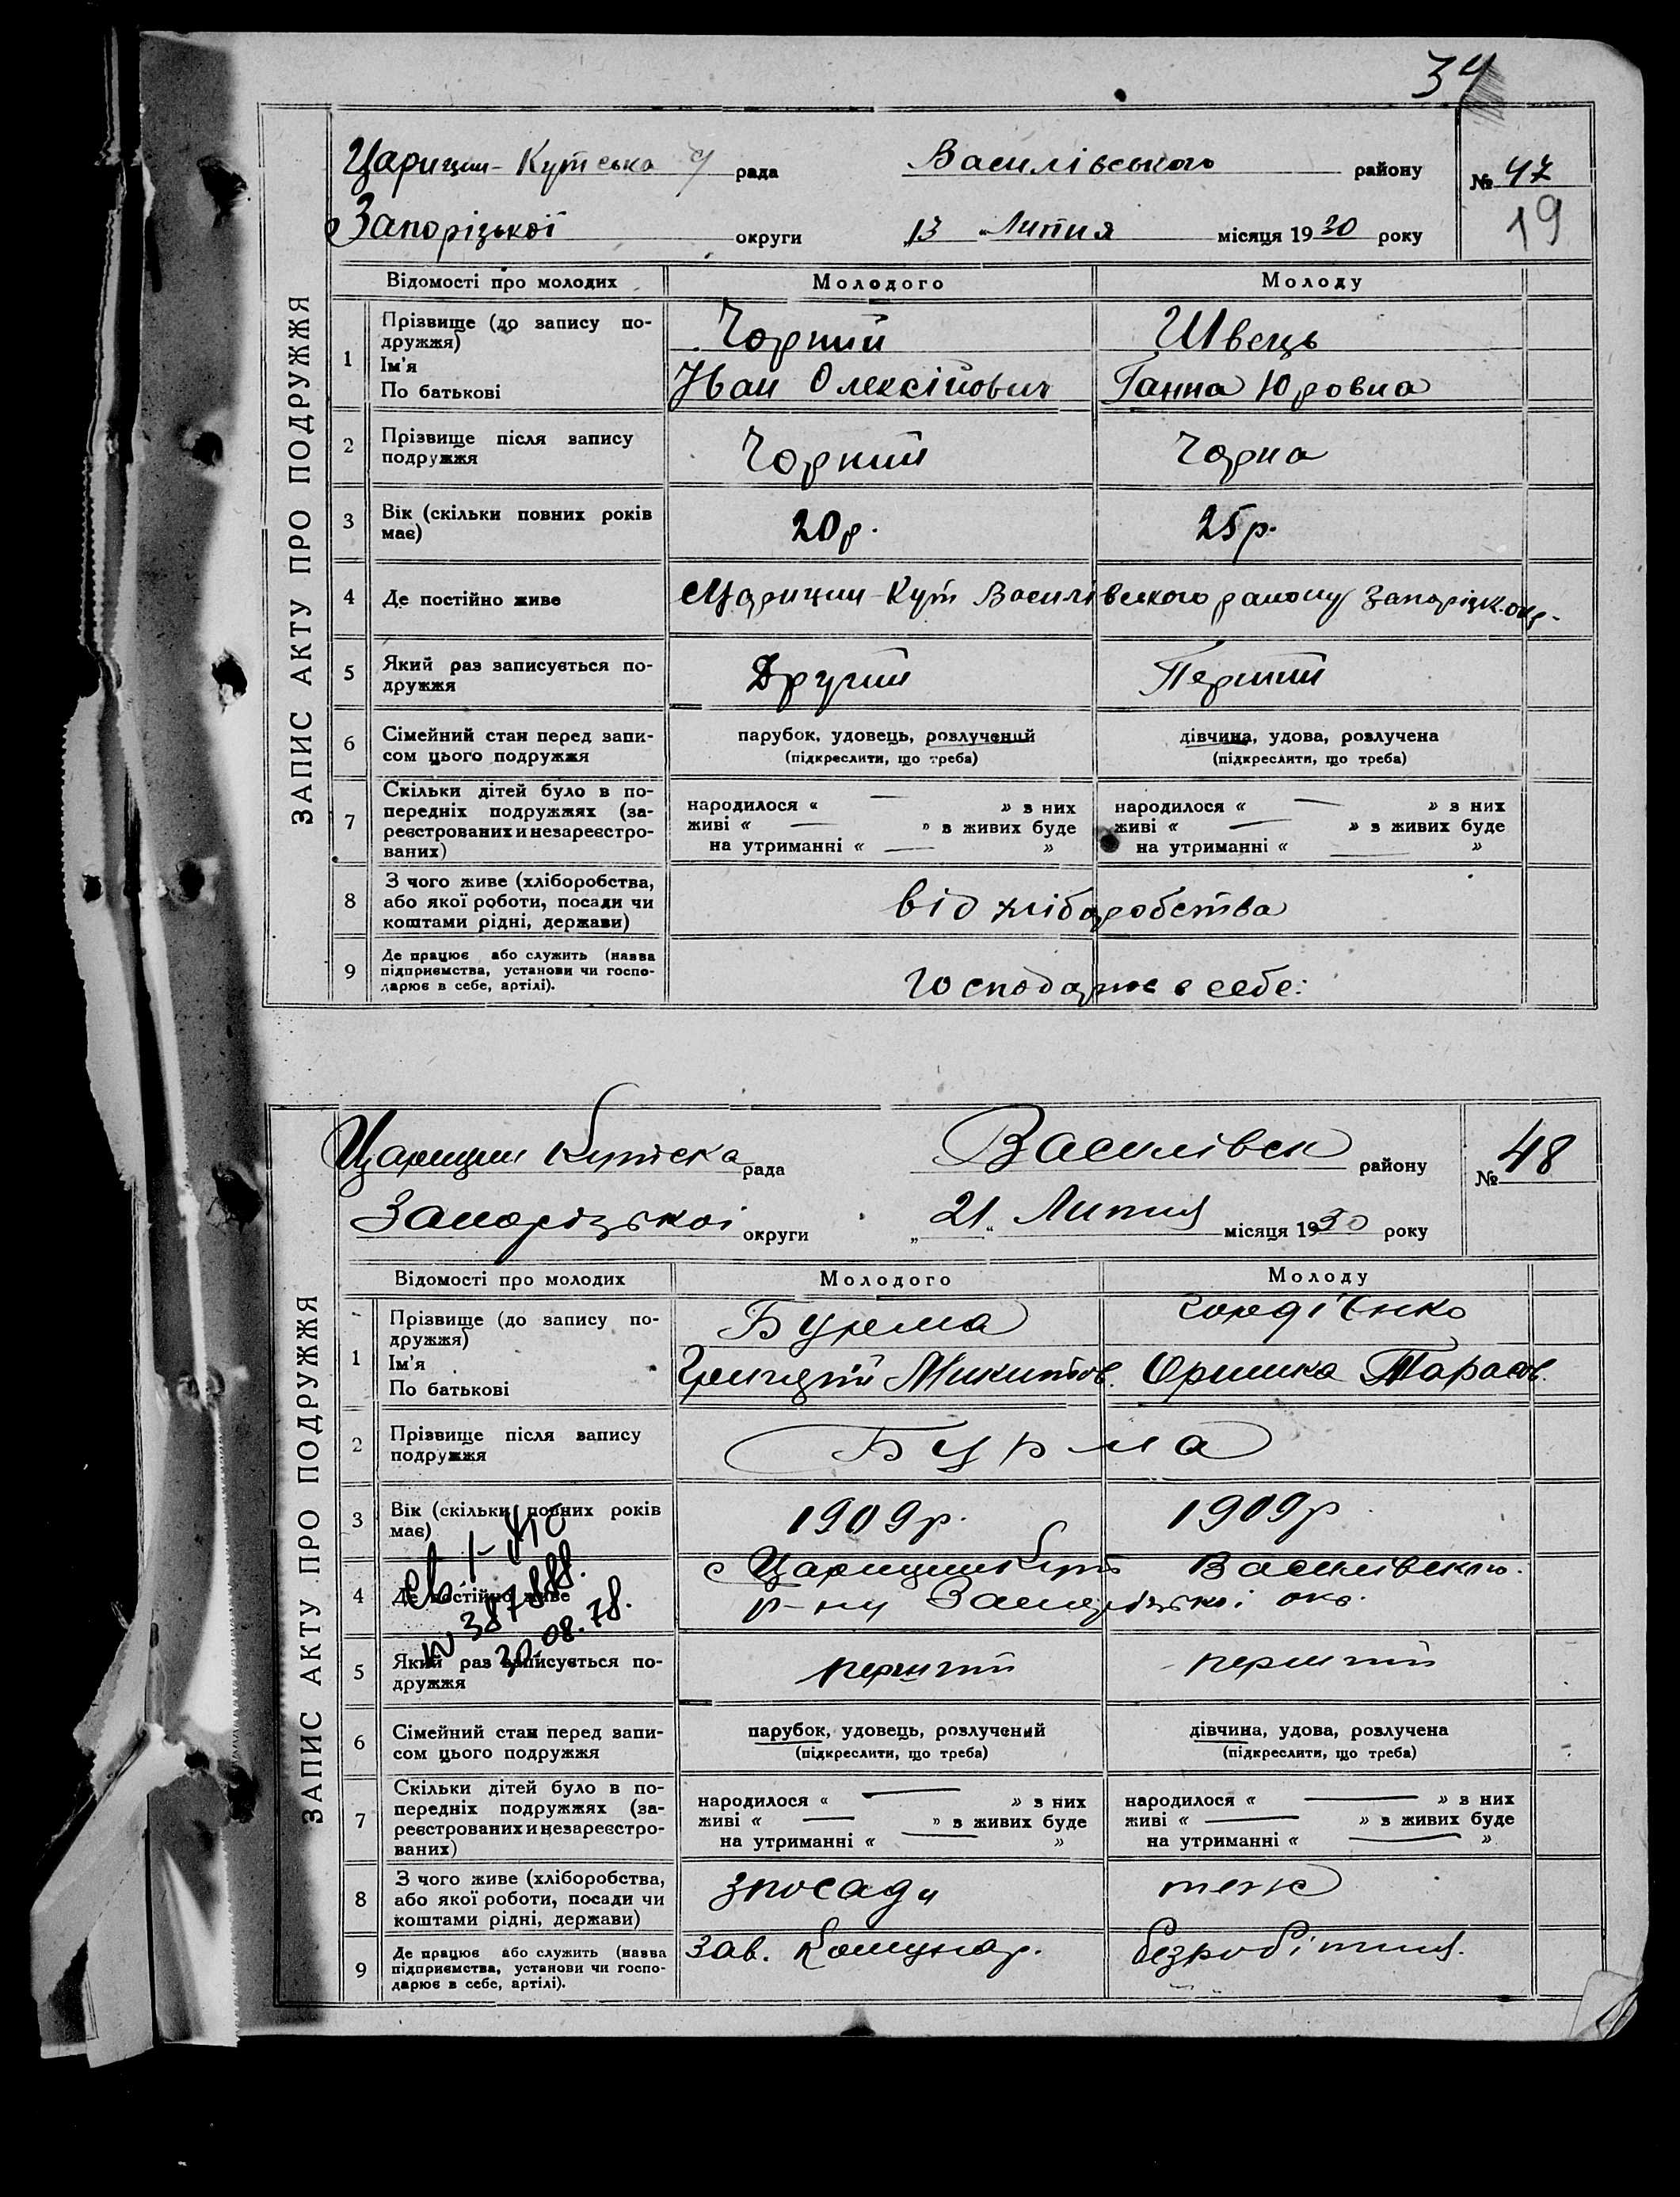 34
Царицин-Кутська рада Василівського району № 47
Запорізької округи „13 “ Липня місяця 1930 року 19
ЗАПИС АКТУ ПРО ПОДРУЖЖЯ
Відомості про молодих Молодого Молоду
1 Прізвище (до запису по-
дружжя) Чорний Швець
Ім'я
По батькові Іван Олексійович Ганна Юровна
2 Прізвище після запису
подружжя Чорний Чорна
3 Вік (скільки повних років
має) 20 р. 25 р.
4 Де постійно живе с Царицин-Кут Василівського району Запорізьк. окр.
5 Який раз записується по-
дружжя Другий Перший
6 Сімейний стан перед запи-
сом цього подружжя
парубок, удовець, розлучений дівчина, удова, розлучена
(підкреслити, що треба) (підкреслити, що треба)
7 Скільки дітей було в по-
передніх подружжях (за-
реєстрованих и незареєстро-
ваних)
народилося « — » з них народилося « — » з них
живі « — » з живих буде живі « — » з живих буде
на утриманні « — » на утриманні « — »
8 З чого живе (хліборобства,
або якої роботи, посади чи
коштами рідні, держави) від хліборобства
9 Де працює або служить (назва
підприємства, установи чи госпо-
дарює в себе, артілі). господарює в себе.
Царицин Кутська рада Василівськ району № 48
Запорізької округи „21 “ Липня місяця 1930 року
ЗАПИС АКТУ ПРО ПОДРУЖЖЯ
Відомості про молодих Молодого Молоду
1 Прізвище (до запису по-
дружжя) Бурма Гордієнко
Ім'я
По батькові Микитов. Оришка Тарасов.
2 Прізвище після запису
подружжя Бурма
3 Вік (скільки повних років
має) 1909 р. 1909 р
4 Де постійно живе с Царицин Кут Василівського.
р-ну Запорізької окр.
№ 387888.
30.08.78.
5 Який раз записується по-
дружжя перший перший
6 Сімейний стан перед запи-
сом цього подружжя
парубок, удовець, розлучений дівчина, удова, розлучена
(підкреслити, що треба) (підкреслити, що треба)
7 Скільки дітей було в по-
передніх подружжях (за-
реєстрованих и незареєстро-
ваних)
народилося « — » з них народилося « — » з них
живі « — » з живих буде живі « — » з живих буде
на утриманні « — » на утриманні « — »
8 З чого живе (хліборобства,
або якої роботи, посади чи
коштами рідні, держави) з посади теж
9 Де працює або служить (назва
підприємства, установи чи госпо-
дарює в себе, артілі). Зав. Комунар. безробітня.